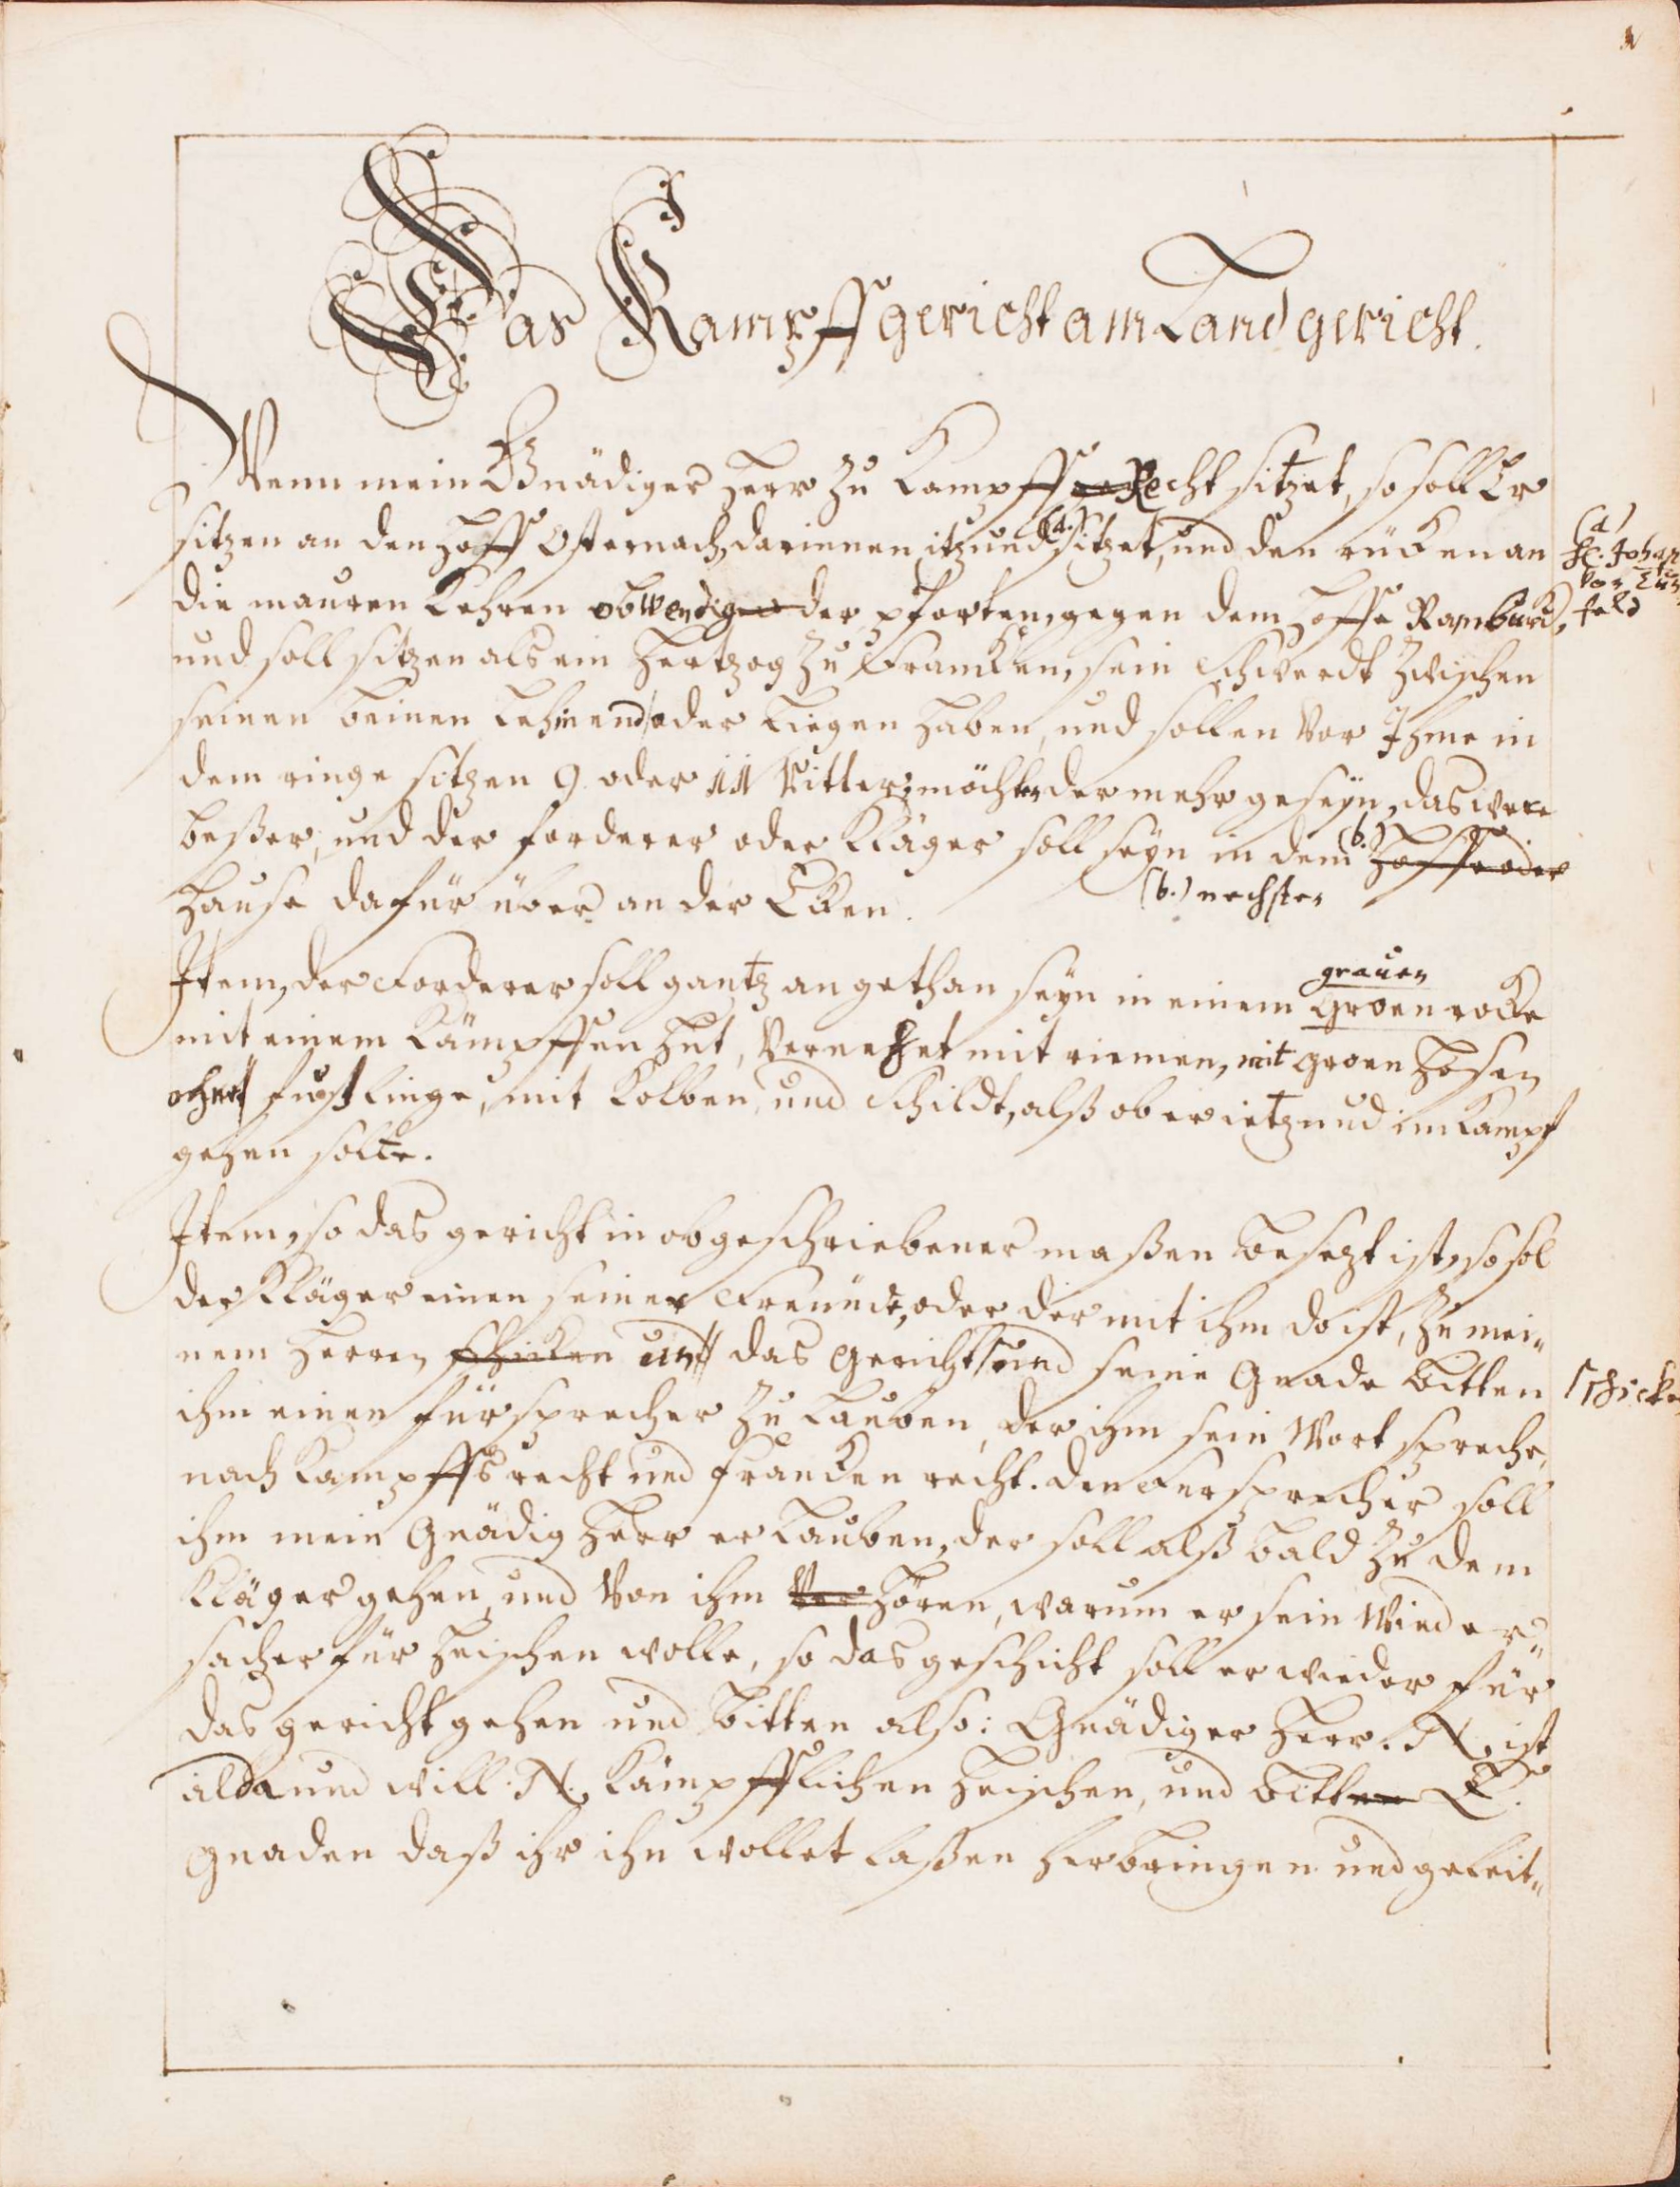 Das Kampffgericht am Landgericht.
Wenn mein Gnädiger Herr zu Kampff Recht sitzet, so soll Er
sitzen an den Hoff Osternach, darinnen itzund (a.) sitzet, und den rücken an
die mauren kehren obwendig der pforten, gegen dem Hoffe Ramburg,
und soll sitzen als ein Hertzog zu Francken, sein Schwerdt zwischen
seinen beinen lehnend oder liegen haben, und sollen vor Ihme in
dem ringe sitzen 9 oder 11 Ritter, möchten der mehr geseyn, das were
beßer, und der forderer oder Kläger soll seyn in dem (b.) Hoffe oder
(b.) nechsten
Hause dafür über an der Ecken.
grauen
Item, der Forderer soll gantz angethan seyn in einem groen rocke
mit einem Kämpffen Hut, vernehet mit riemen, mit groen Hosen
ohne fußlinge, mit Kolben, und Schildt, alß ob er ietzund im Kampf
gehen solte.
Item, so das gericht in obgeschriebener maßen besezt ist, so sol
der Kläger einen seiner Freunde, oder der mit ihm do ist, zu mei„
nem Herren schicken das gericht und seine Gnade bitten
ihm einen fürsprecher zu lauben, der ihm sein Wort spreche,
nach Kampffs recht und francken recht. den Fursprecher soll
ihm mein Gnädig Herr erlauben, der soll alß bald zu dem
Kläger gehen, und von ihm Ver hören, warum er sein Wieder„
sacher für heischen wolle, so das geschicht soll er wieder für
das gericht gehen und bitten also: Gnädiger Herr. N. ist
alda und will N. Kämpfflichen heischen, und bitten E.
Gnaden daß ihr ihn wollet laßen herbringen und geleit„
(a)
H. Johan
von
feld
schicke